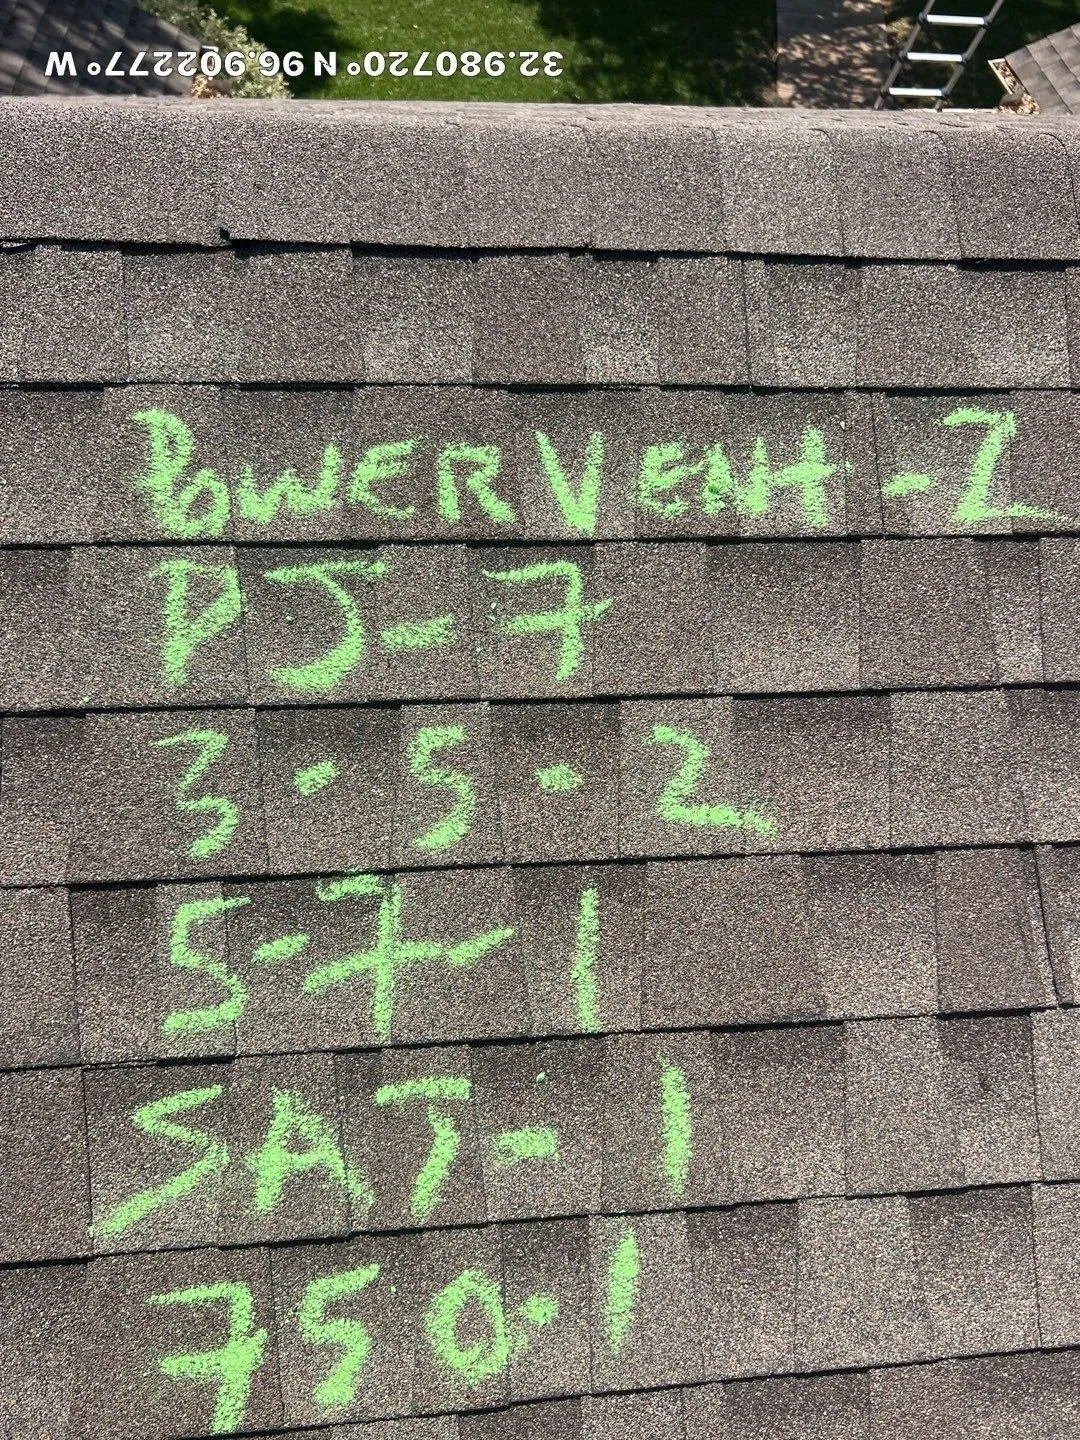 32.980720° N 96.902277° W
POWER VENT - 2
PJ - 7
3 · 5 · 2
5 - 7 - 1
SAT - 1
750 · 1